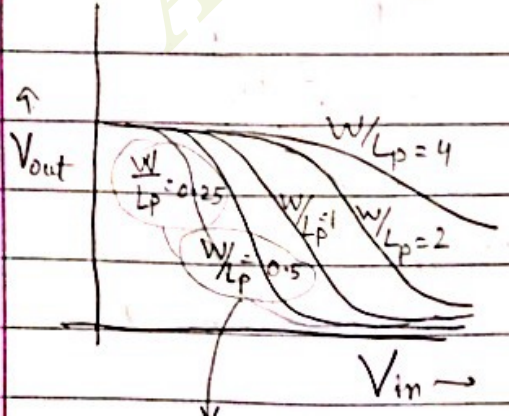 ↑
Vout
W/Lp = 4
W/Lp = 0.25
W/Lp = 1
W/Lp = 2
W/Lp = 0.5
Vin →